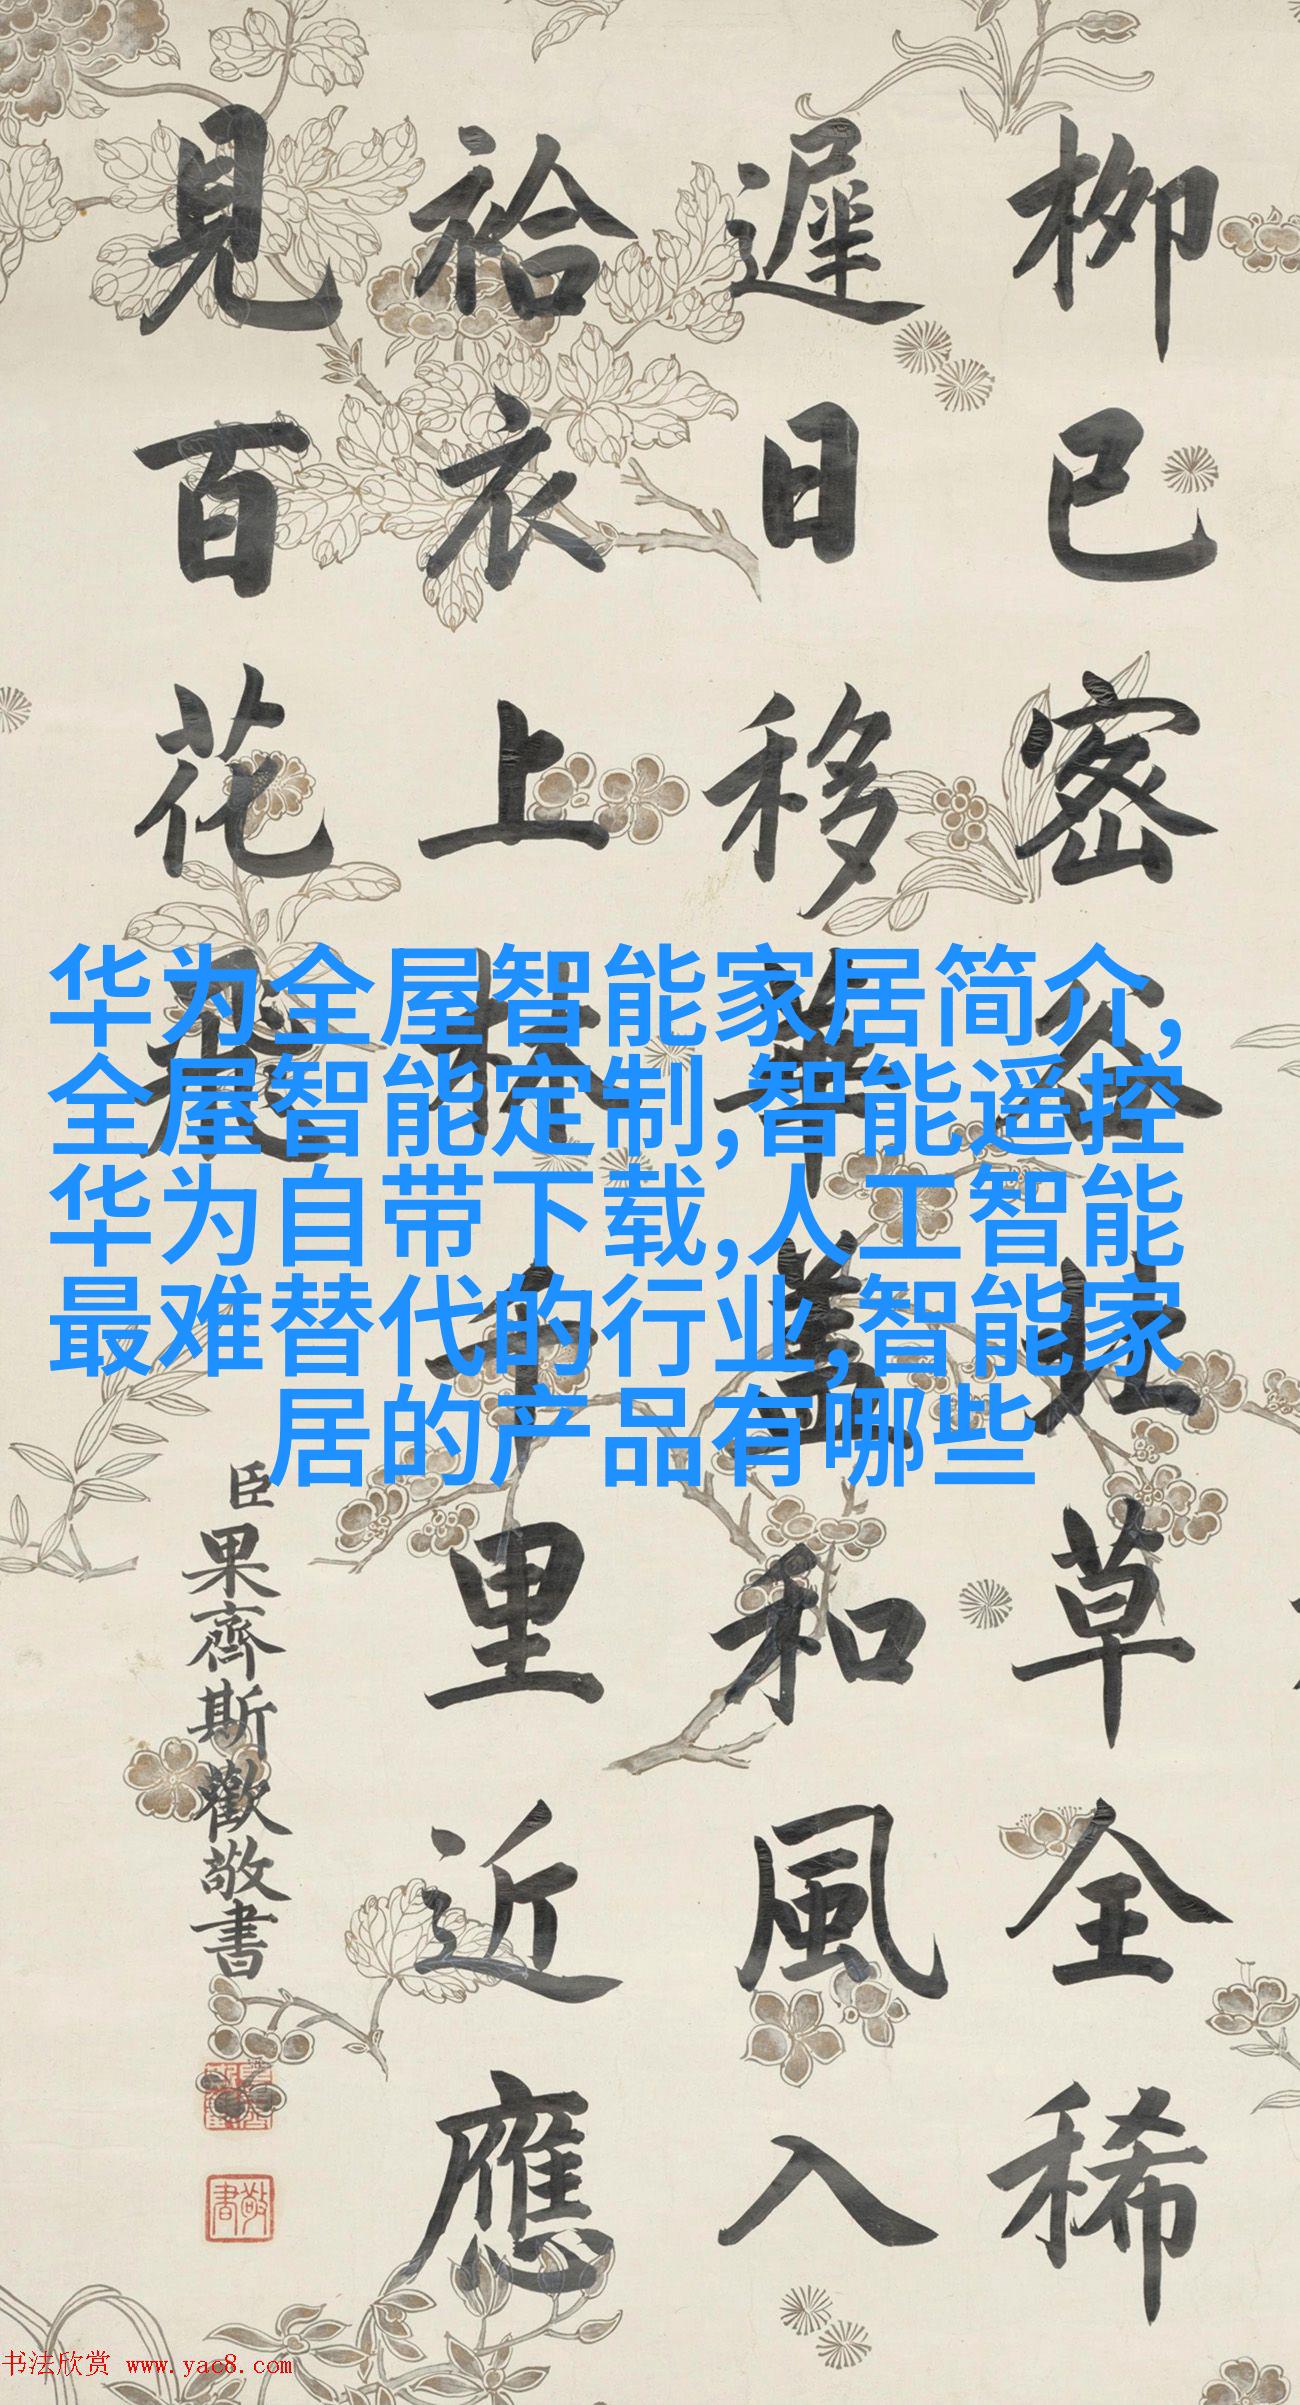 柳已密谷北草全稀
遲日移華蓋和風入
袷衣上林千里近應
見百花飛
臣果齊斯歡敬書
敬書
华为全屋智能家居简介,
全屋智能定制,智能遥控
华为自带下载,人工智能
最难替代的行业,智能家
居的产品有哪些
书法欣赏 www.yac8.com